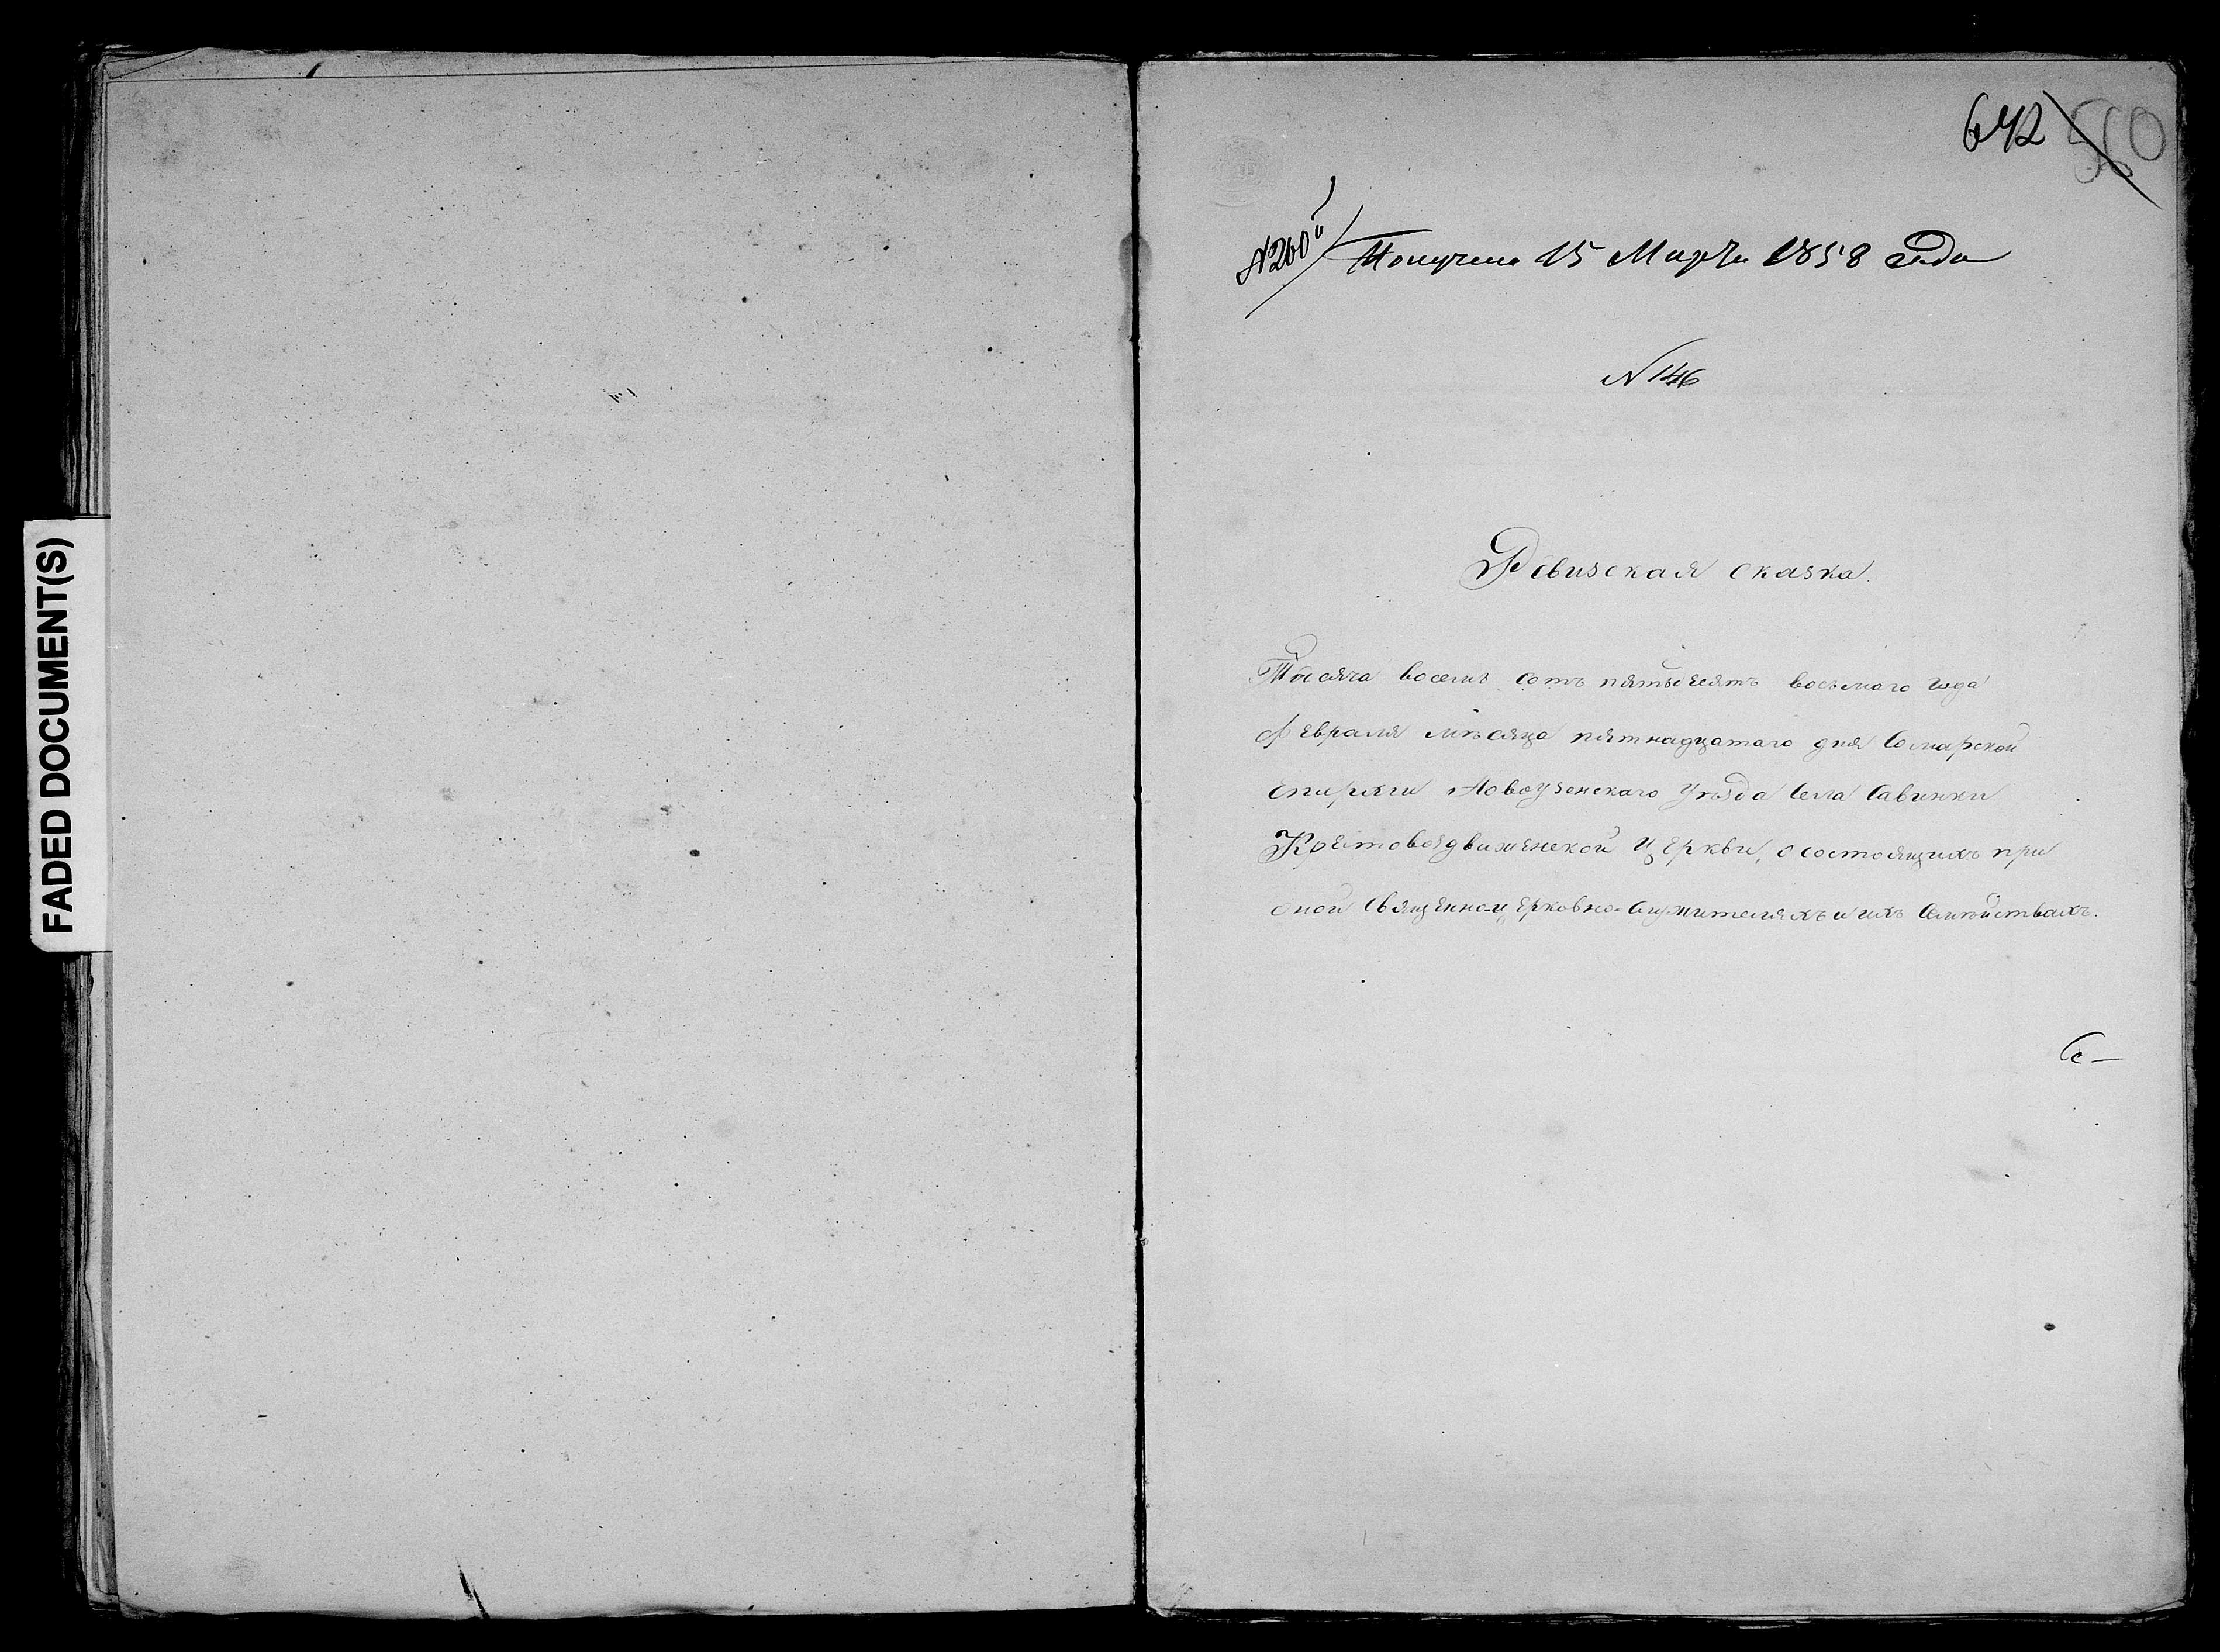 FADED DOCUMENT(S)
642 560
N 260й Получена 15 Марта 1858 года
N 146
Ревизская сказка.
Тысяча восемь сотъ пятьдесятъ восьмаго года
Февраля мѣсяца пятнадцатаго дня Самарской
Епархіи Новоузенскаго Уѣзда Села Савинки
Крестовоздвиженской Церкви, о состоящихъ при
оной Священно-церковно-служителяхъ и ихъ Семѣйствахъ.
Се-